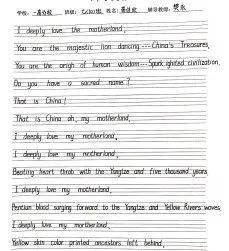 学校: 班级: 姓名: 辅导教师:
I deeply love the motherland,
You are the majestic lion dancing---China's Treasures,
You are the origh of human wisdom---Spark ignited civilization.
Do you have a sacred name?
That is China!
That is China oh, my motherland,
I deeply love my motherland,
I deeply love my motherland,
Beating heart throb with the Yangtze and five thousand years
I deeply love my motherland,
Pentian blood surging forward to the Yangtze and Yellow Rivers waves,
I deeply love my motherland,
Yellow skin color printed ancestors left behind,